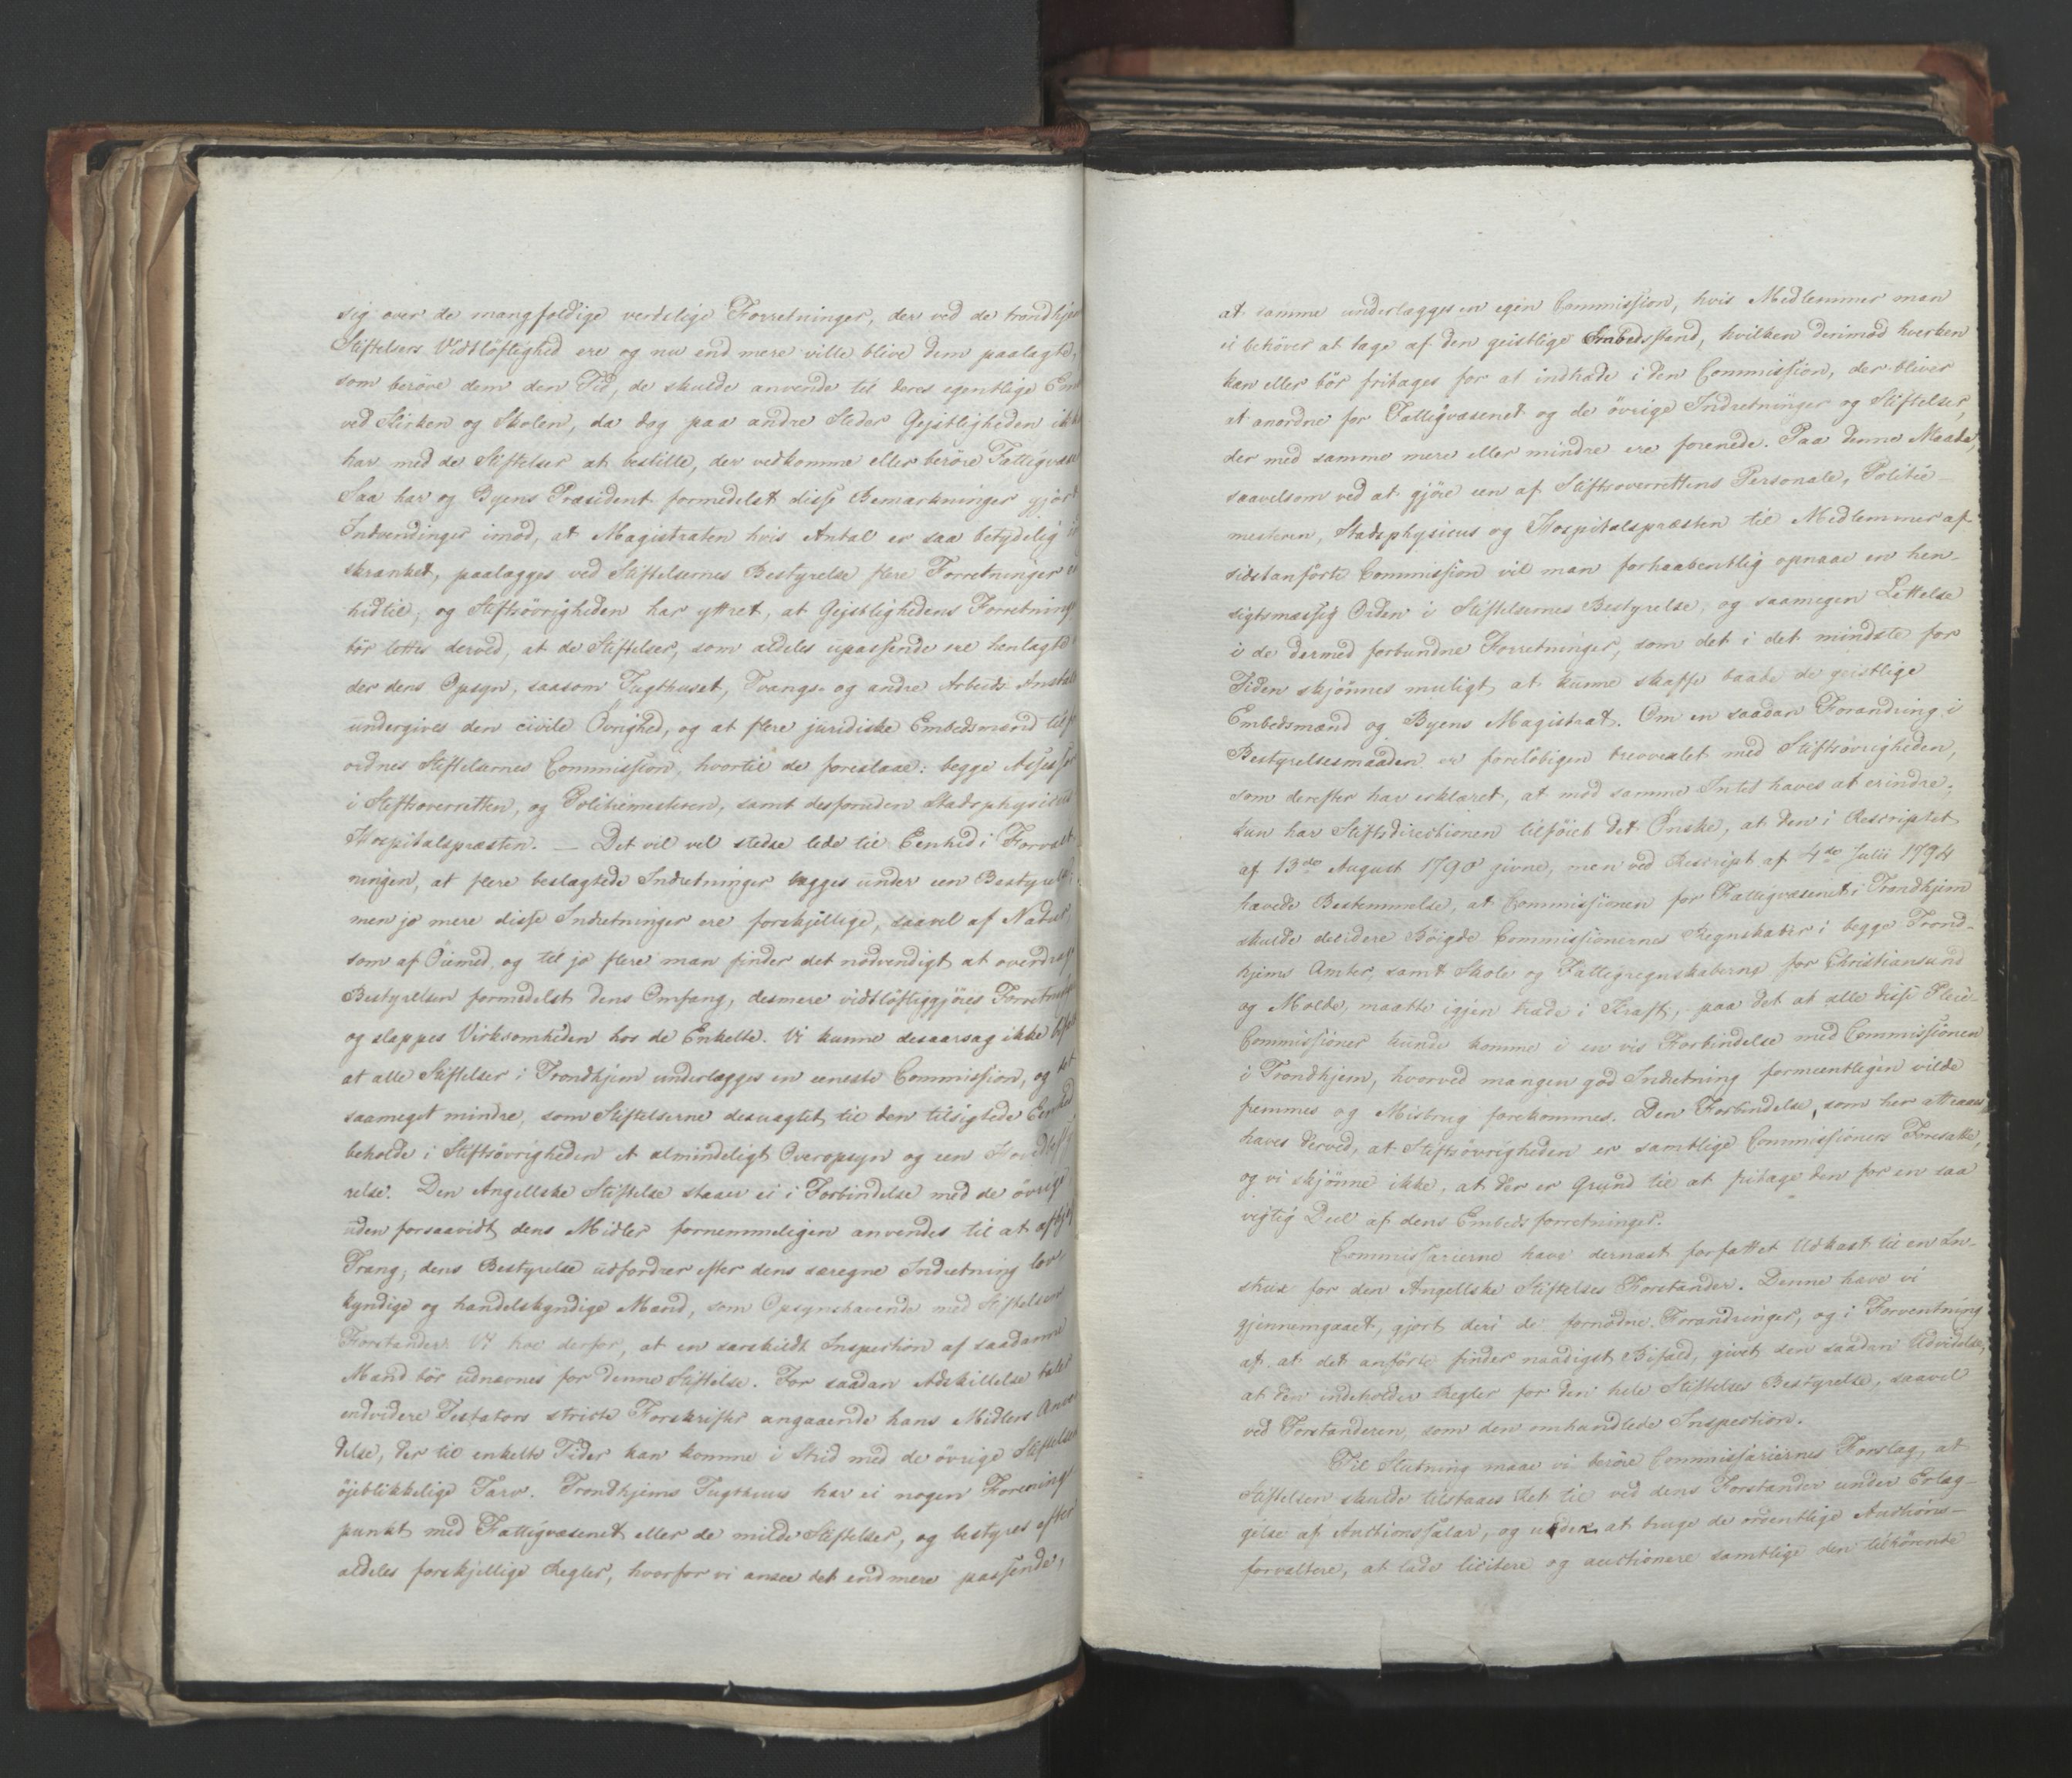 sig over de mangfoldige verdslige Forretninger, der ved de trondhjem
Stiftelsers Vidtlöftighed ere og nu end mere ville blive dem paalagte,
som beröve dem den Tid, de skulde anvende til deres egentlige Em
ved Kirken og Skolen, da dog paa andre Steder Gejstligheden ikke
har med de Stiftelser at bestille, der vedkomme eller beröre Fattigvæse
Saa har og Byens Præsident formedelst disse Bemærkninger gjort
Indvendinger imod, at Magistraten hvis Antal er saa betydelig i
skrænket, paalægges ved Stiftelsernes Bestyrelse flere Forretninger
hidtil, og Stiftsövrigheden har yttret, at Gejstlighedens Forretning
bör lettes derved, at de Stiftelser, som aldeles upassende ere henlagte
der dens Opsyn, saasom Tugthuset, Tvangs- og andre Arbeids Anstal
undergives den civile Övrighed, og at flere juridiske Embedsmænd til
ordnes Stiftelsernes Commission, hvortil de foreslaae: begge Assessor
i Stiftsoverretten, og Politiemesteren, samt desforuden Stadsphysicus
Hospitalspræsten. — Det vil vel stedse lede til Eenhed i Forvalt
ningen, at flere beslægtede Indretninger lægges under een Bestyrelse;
men jo mere disse Indretninger ere forskjellige, saavel af Natur,
som af Öiemed, og til jo flere man finder det nödvendigt at overdrage
Bestyrelsen formedelst dens Omfang, desmere vidtlöftiggjöres Forretn
og slappes Virksomheden hos de Enkelte. Vi kunne desaarsag ikke
at alle Stiftelser i Trondhjem underlægges en eeneste Commission, og det
saameget mindre, som Stiftelserne desuagtet til den tilsigtede Eenhed
beholde i Stiftsövrigheden et almindeligt Overopsyn og een Hoved
relse. Den Angellske Stiftelse staaer ei i Forbindelse med de övrige
uden forsaavidt dens Midler fornemmeligen anvendes til at afhje
Trang; dens Bestyrelse udfordrer efter dens særegne Indretning lov
kyndige og handelskyndige Mænd, som Opsynshavende med Stiftelsens
Forstander. Vi troe derfor, at en særskildt Inspection af saadanne
Mænd bör udnævnes for denne Stiftelse. For saadan Adskillelse taler
endvidere Testators stricte Forskrifter angaaende hans Midlers Anven
delse, der til enkelte Tider kan komme i Strid med de övrige Stiftelser
öjeblikkelige Tarv. Trondhjems Tugthuus har ei nogen Forening
punkt med Fattigvæsenet eller de milde Stiftelser, og bestyres efter
aldeles forskjellige Regler, hvorfor vi ansee det end mere passende,
at samme underlægges en egen Commission, hvis Medlemmer man
ei behöver at tage af den geistlige Embedsstand, hvilken derimod hverken
kan eller bör fritages for at indtræde i den Commission, der bliver
at anordne for Fattigvæsenet og de övrige Indretninger og Stiftelser,
der med samme mere eller mindre ere forenede. Paa denne Maade,
saavelsom ved at gjöre een af Stiftsoverrettens Personale, Politie-
mesteren, Stadsphysicus og Hospitalspræsten til Medlemmer af
sidstanförte Commission vil man forhaabentlig opnaae en hen-
sigtsmæssig Orden i Stiftelsernes Bestyrelse, og saamegen Lettelse
i de dermed forbundne Forretninger, som det i det mindste for
Tiden skjönnes muligt at kunne skaffe baade de geistlige
Embedsmænd og Byens Magistrat. Om en saadan Forandring i
Bestyrelsesmaaden er forelöbigen brevvexlet med Stiftsövrigheden,
som derefter har erklæret, at mod samme Intet haves at erindre;
kun har Stiftsdirectionen tilföiet det Önske, at den i Rescriptet
af 13de August 1790 givne, men ved Rescript af 4de Julii 1794
hævede Bestemmelse, at Commissionen for Fattigvæsenet i Trondhjem
skulde decidere Böigde Commissionernes Regnskaber i begge Trond-
hjems Amter, samt Skole og Fattigregnskaberne for Christiansund
og Molde, maatte igjen træde i Kraft, paa det at alle disse Pleie-
Commissioner kunde komme i en vis Forbindelse med Commissionen
i Trondhjem, hvorved mangen god Indretning formeentligen vilde
fremmes og Misbrug forekommes. Den Forbindelse, som her attraaes,
haves derved, at Stiftsövrigheden er samtlige Commissioners Foresatte,
og vi skjönne ikke, at der er Grund til at fritage den for en saa
vigtig Deel af dens Embedsforretninger.
Commissarierne have dernæst forfattet Udkast til en In-
strux for den Angellske Stiftelses Forstander. Denne have vi
gjennemgaaet, gjort deri de fornödne Forandringer, og i Forventning
af at det anförte finder naadigst Bifald, givet den saadan Udvidelse,
at den indeholder Regler for den hele Stiftelses Bestyrelse, saavel
ved Forstanderen, som den omhandlede Inspection.
Til Slutning maae vi beröre Commissariernes Forslag, at
Stiftelsen skulde tilstaaes Ret til ved dens Forstander under Erlæg-
gelse af Auctionssalær, og uden at bruge de ordentlige Auctions-
forvaltere, at lade licitere og auctionere samtlige den tilhörende